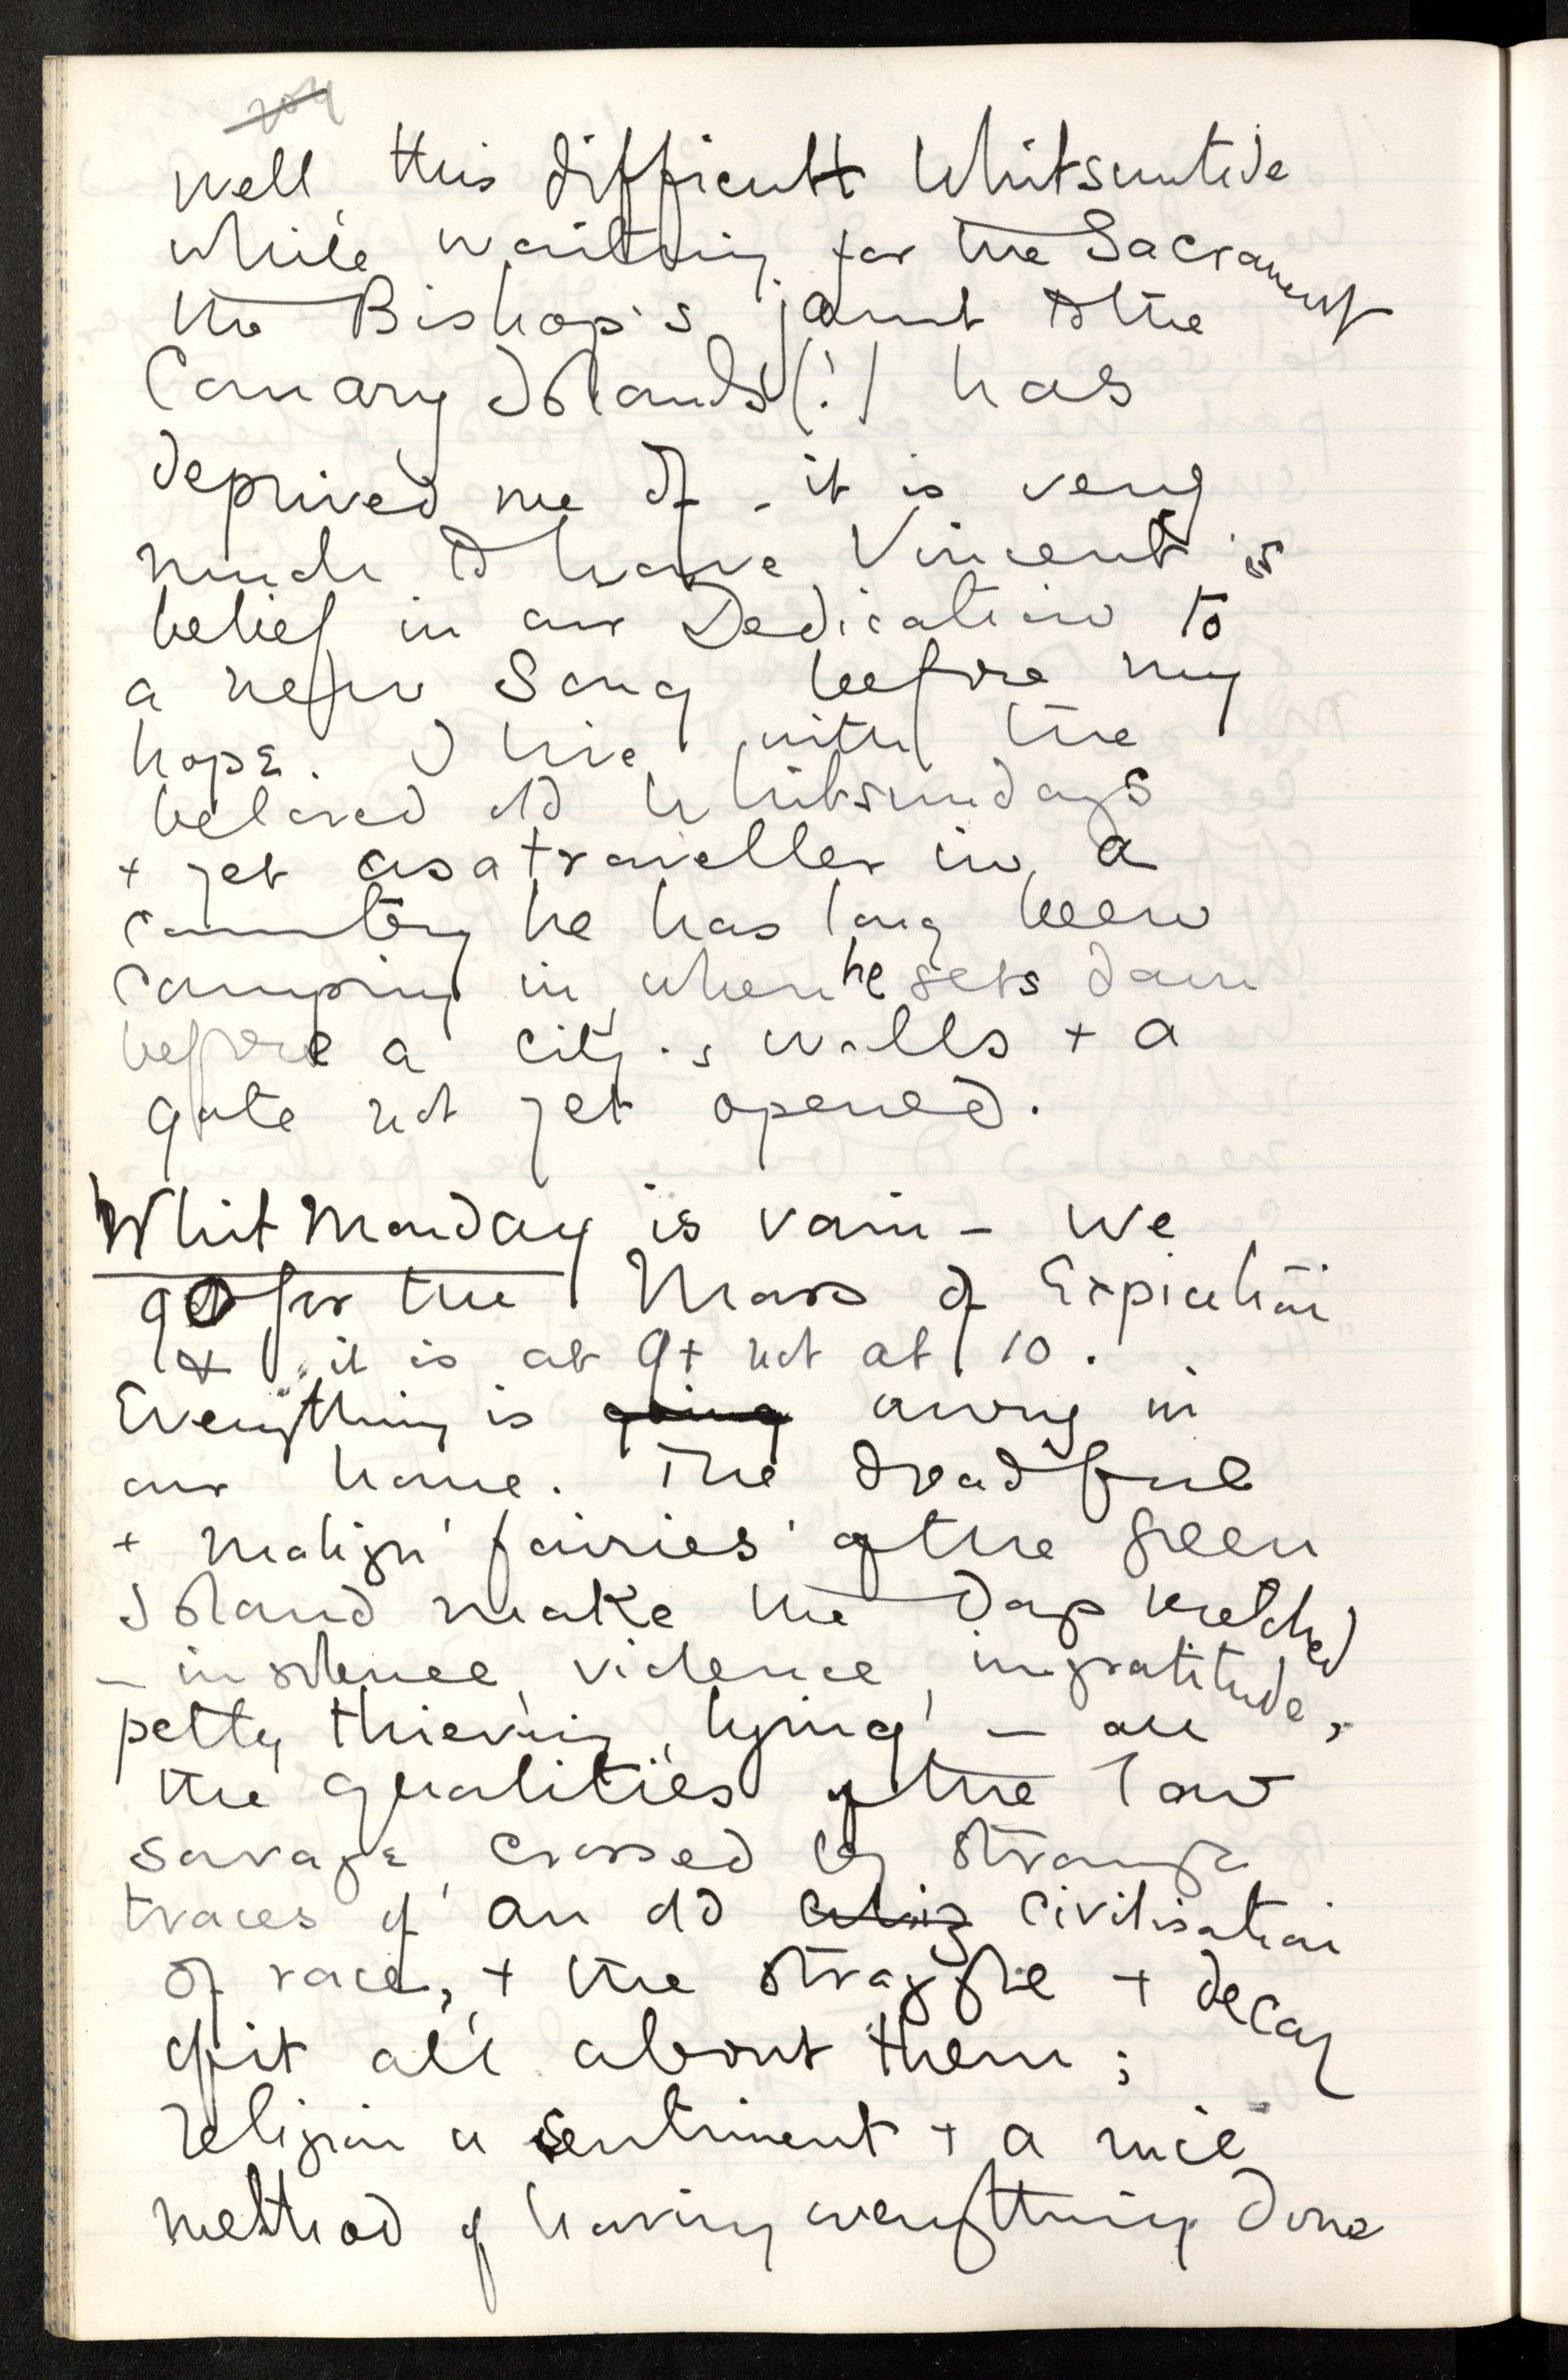 well, this difficult Whitsuntide
while waiting for the Sacrament
the Bishop's jaunt to the
Canary Islands (!) has
deprived me of - it is very
much to have Vincent's
belief in our Dedication to
a new Song before my
hope. I live with the
beloved old Whitsundays
+ yet as a traveller in a
country he has long been
camping in when he sets down
before a city's walls + a
gate not yet opened.
Whit Monday is vain - we
go for the Mass of Expiation
+ it is at 9 + not at 10.
Everything is going awry in
our home. The dreadful
+ malign 'fairies' of the green
Island make the days wretched
- insolence, violence, ingratitude,
petty thieving, lying, - all
the qualities of the low
savage crossed by strange
traces of an old civilisation
of race, + the straggle + decay
of it all about them;
religion a sentiment + a nice
method of having everything done